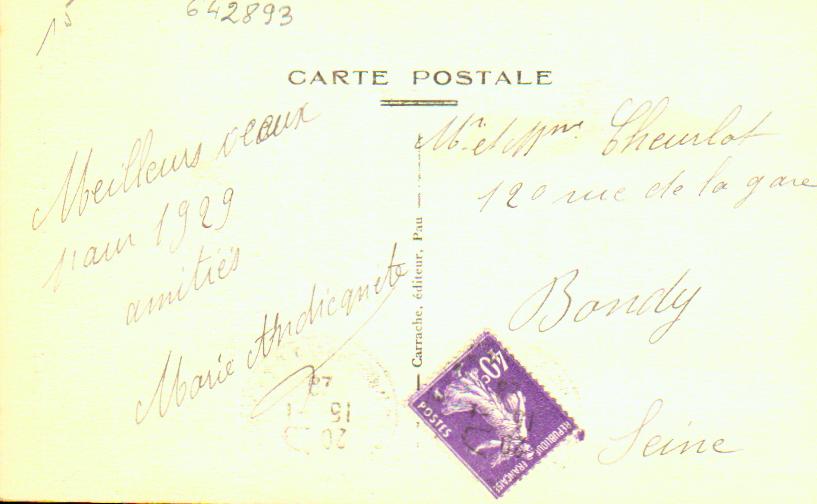 15
642893
CARTE POSTALE
Meilleurs veaux
p'aur 1929
amitiés
Marie Andicquete
Mr et Mme Cheurlot
120 rue de la gare
Bondy
Seine
Carrache, éditeur, Pau
40c
POSTES
REPUBLIQUE FRANÇAISE
20
15